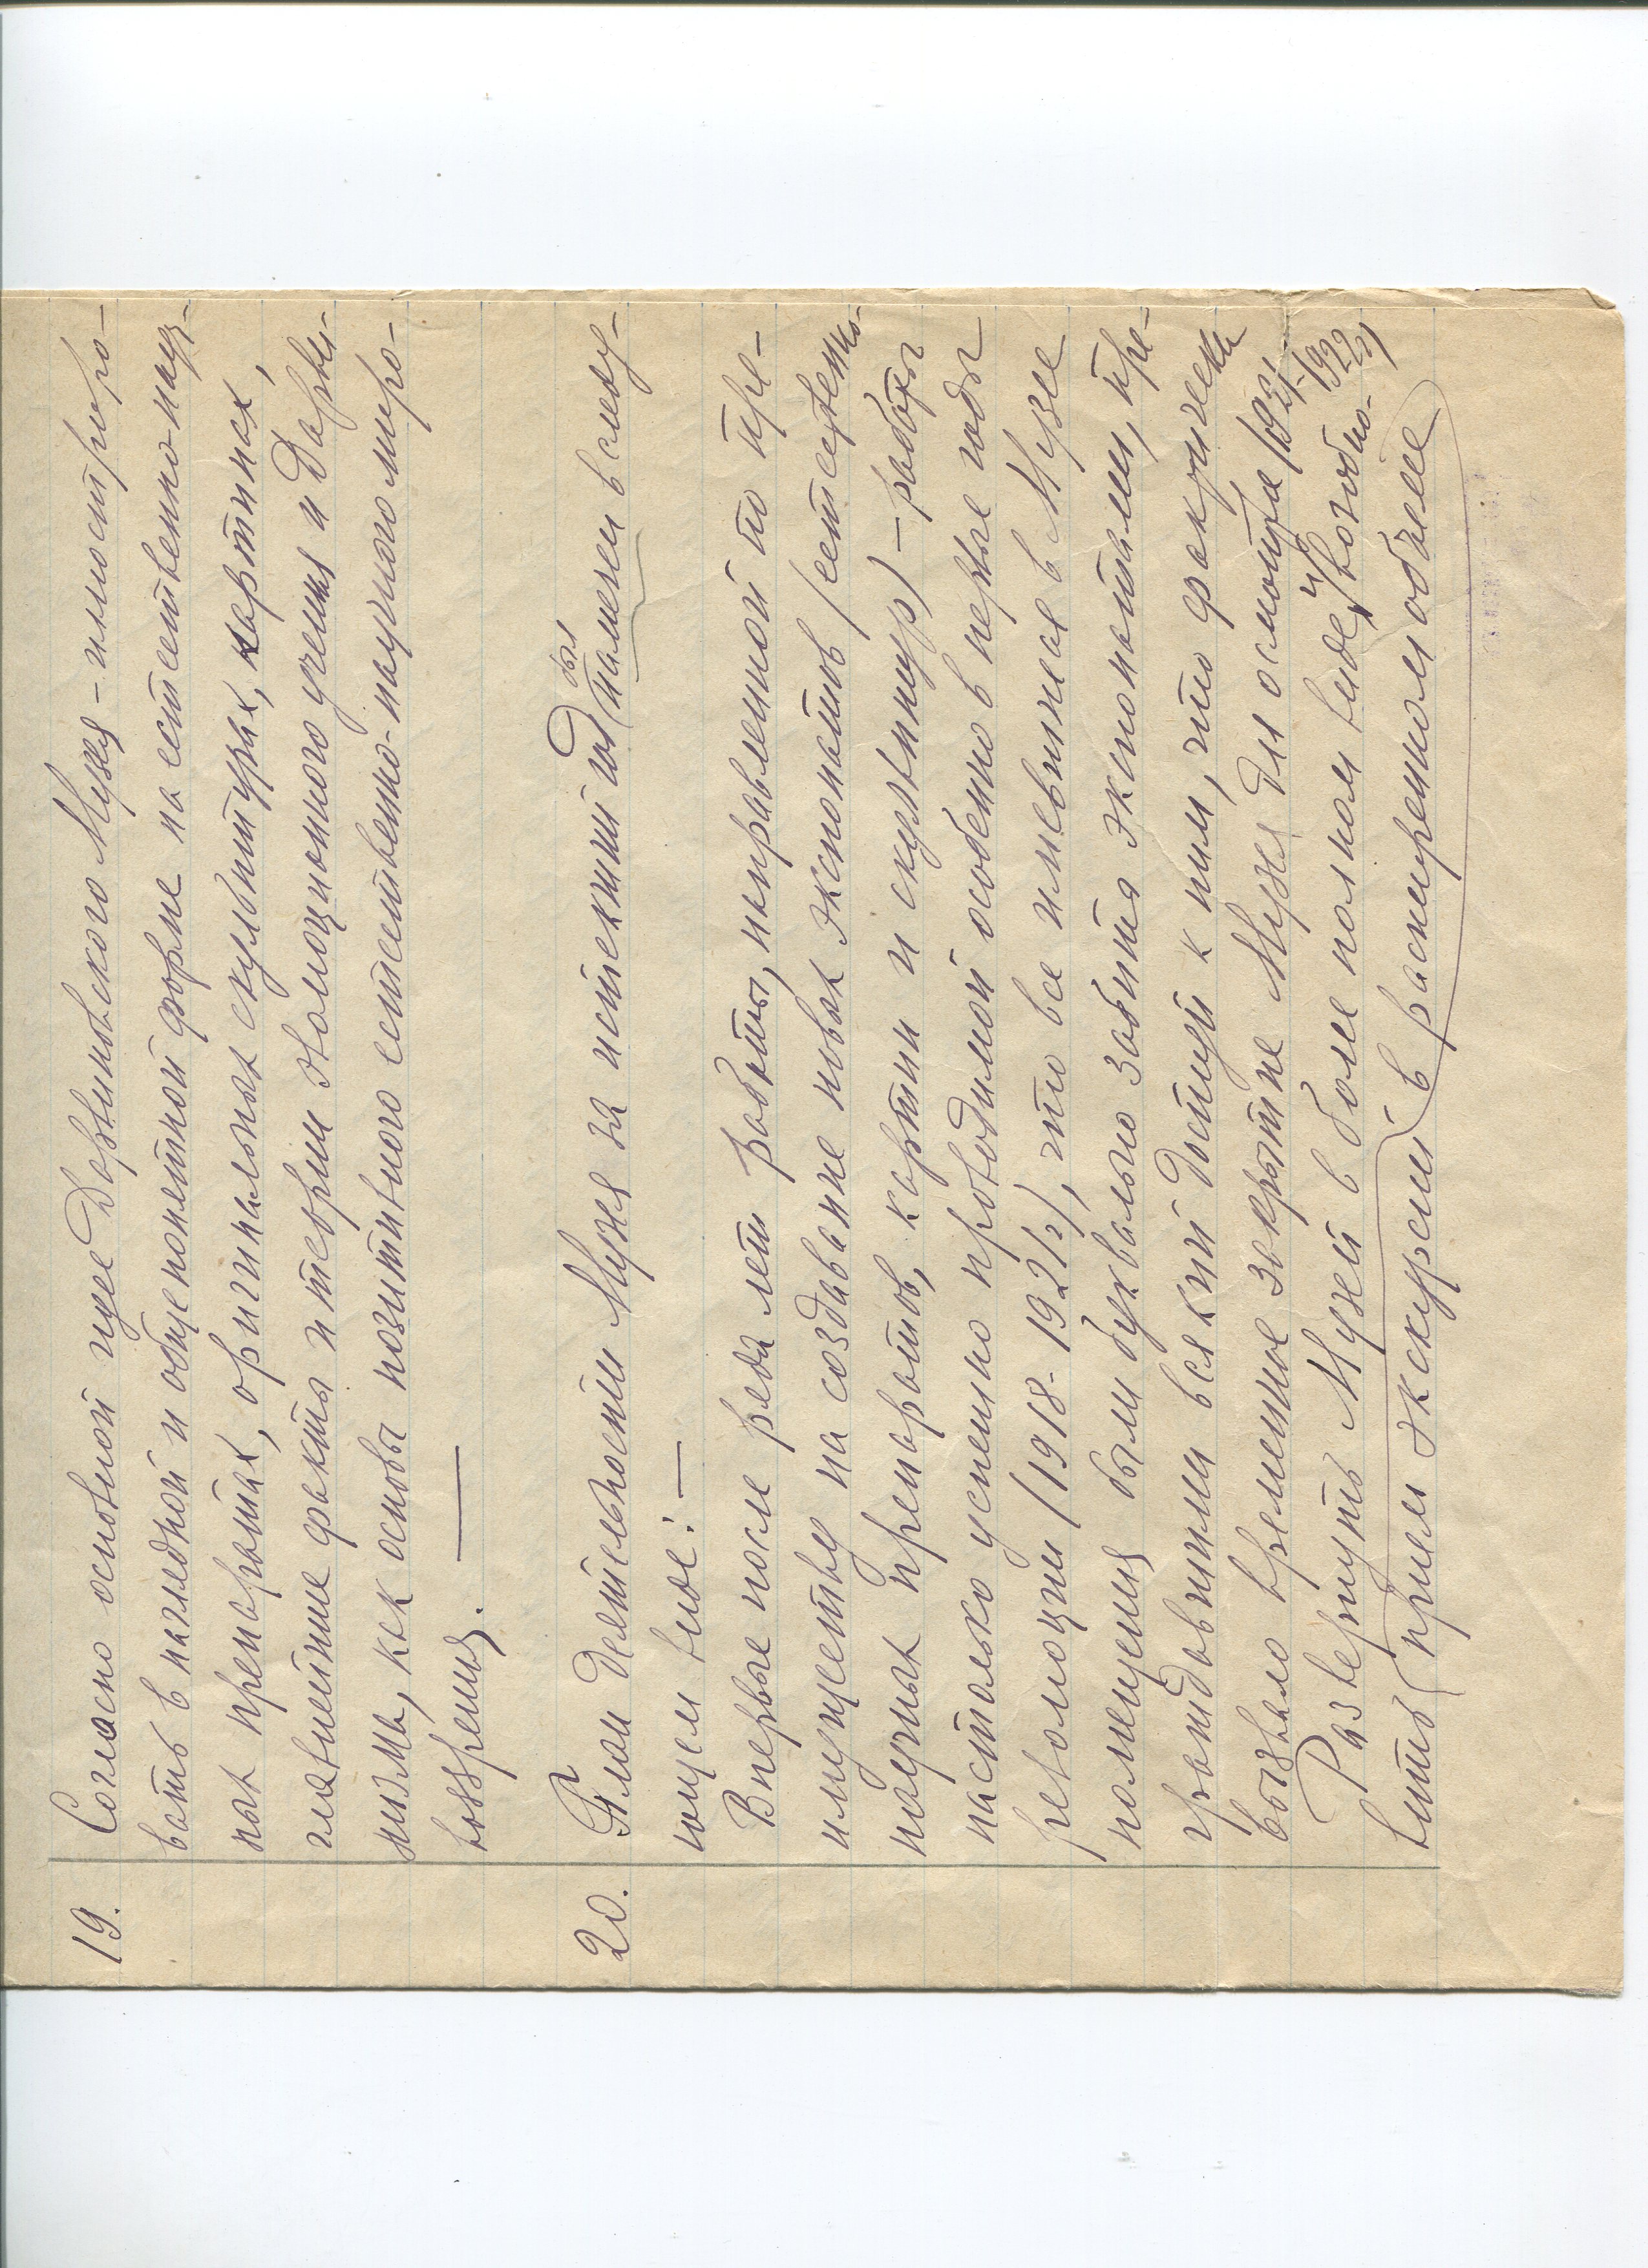 19. Согласно основной идее Дарвиновского Музея – иллюстриро-
вать в наглядной и общепонятной форме на естественно-науч-
ных препаратах, оригинальных скульптурах, картинах,
главнейшие факты и теории эволюционного учения и Дарви-
низма, как основы позитивного естественно-научного миро-
воззрения.
20. План деятельности Музея за истекший год был намечен в следу-
ющем виде: –
Впервые после ряда лет работы, направленной по пре-
имуществу на создавание новых экспонатов (естественно-
научных препаратов, картин и скульптур) – работы
настолько успешно проводимой особенно в первые годы
революции (1918-1921/2), что все имевшиеся в Музее
помещения были буквально забиты экспонатами, пре-
граждавшими всякий доступ к ним, что фактически
вызвало временное закрытие Музея для осмотра /1921-1922/
Развернуть Музей в более полном виде и возобно-
вить прием экскурсий в расширенном объеме